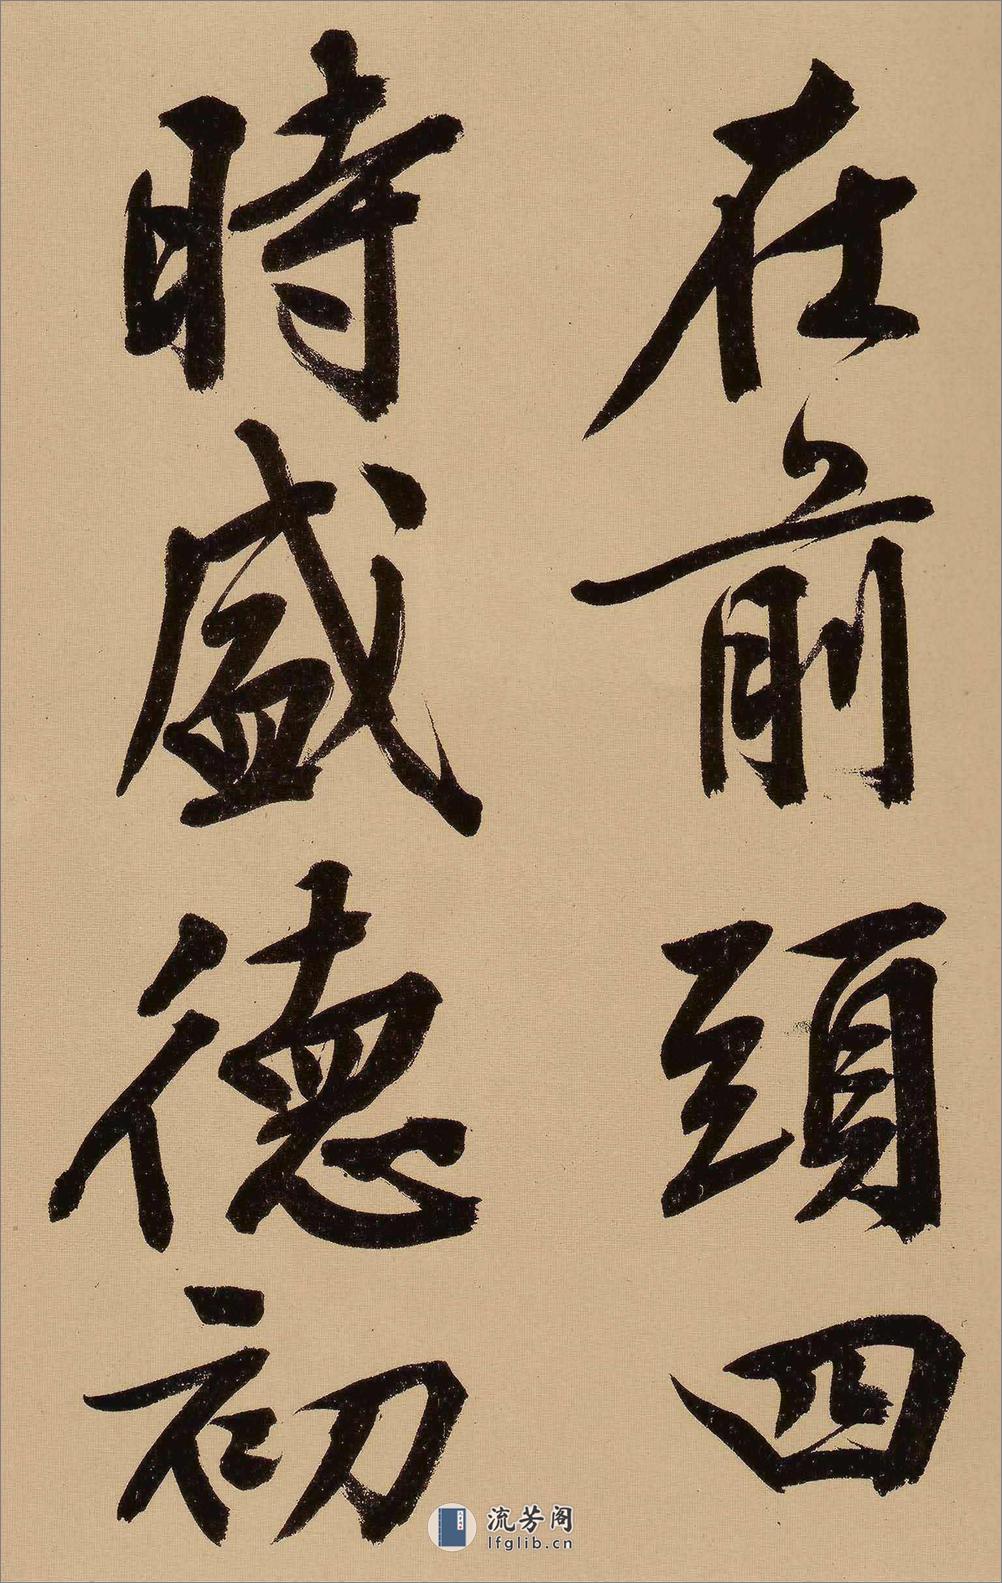 在前頭四
時盛德初
流芳阁
lfglib.cn